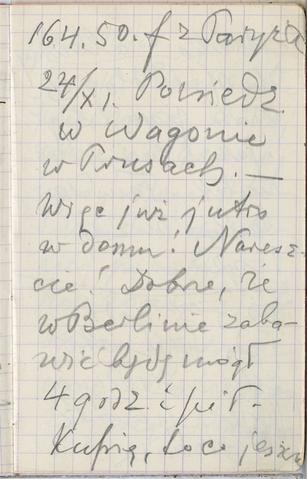 164.50. f z Paryża
24/XI. Poniedz.
w Wagonie
w Prusach. —
Więc już jutro
w domu! Naresz-
cie! Dobrze, że
w Berlinie zaba-
wić będę mógł
4 godz i pół -
Kupię, to co jeszcze